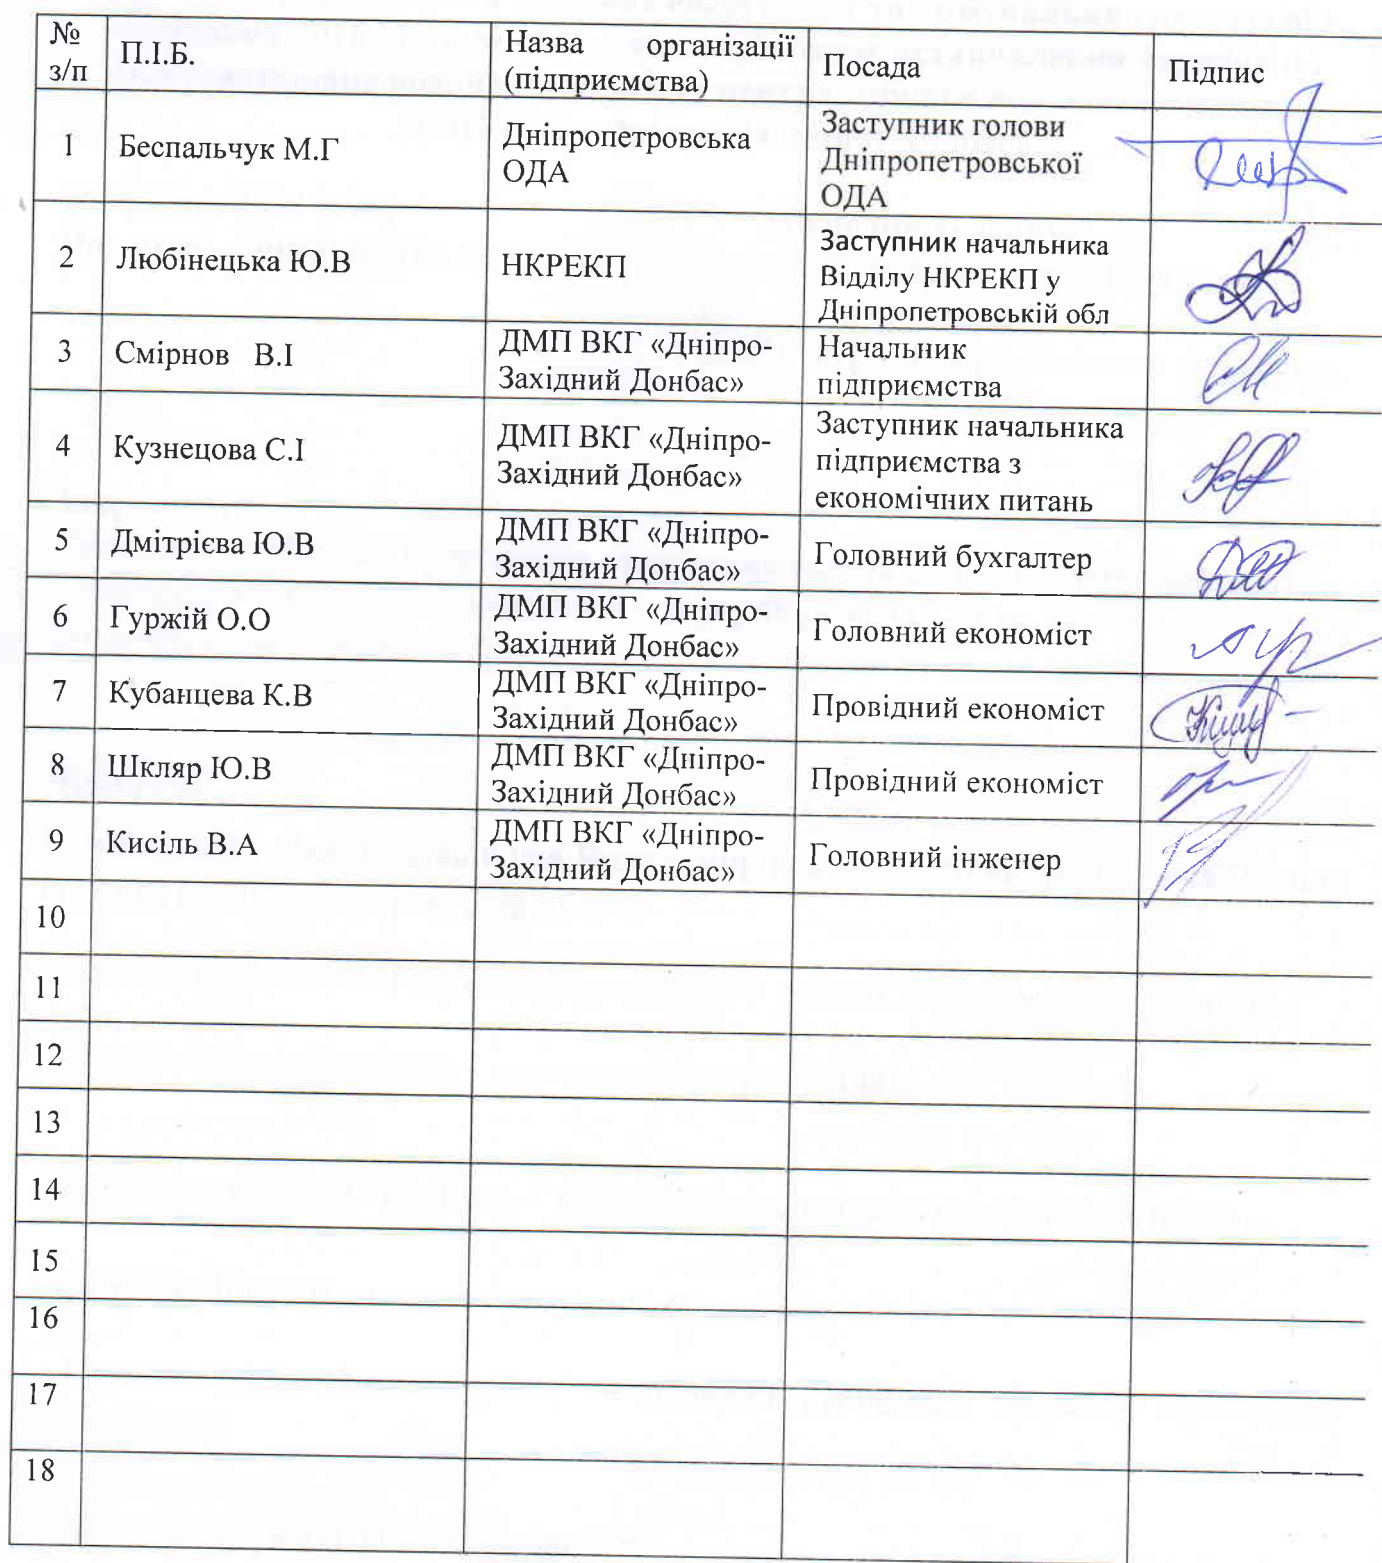 № з/п П.І.Б. Назва організації (підприємства) Посада Підпис
1 Беспальчук М.Г Дніпропетровська ОДА Заступник голови Дніпропетровської ОДА
2 Любінецька Ю.В НКРЕКП Заступник начальника Відділу НКРЕКП у Дніпропетровській обл
3 Смірнов В.І ДМП ВКГ «Дніпро-Західний Донбас» Начальник підприємства
4 Кузнецова С.І ДМП ВКГ «Дніпро-Західний Донбас» Заступник начальника підприємства з економічних питань
5 Дмітрієва Ю.В ДМП ВКГ «Дніпро-Західний Донбас» Головний бухгалтер
6 Гуржій О.О ДМП ВКГ «Дніпро-Західний Донбас» Головний економіст
7 Кубанцева К.В ДМП ВКГ «Дніпро-Західний Донбас» Провідний економіст
8 Шкляр Ю.В ДМП ВКГ «Дніпро-Західний Донбас» Провідний економіст
9 Кисіль В.А ДМП ВКГ «Дніпро-Західний Донбас» Головний інженер
10
11
12
13
14
15
16
17
18